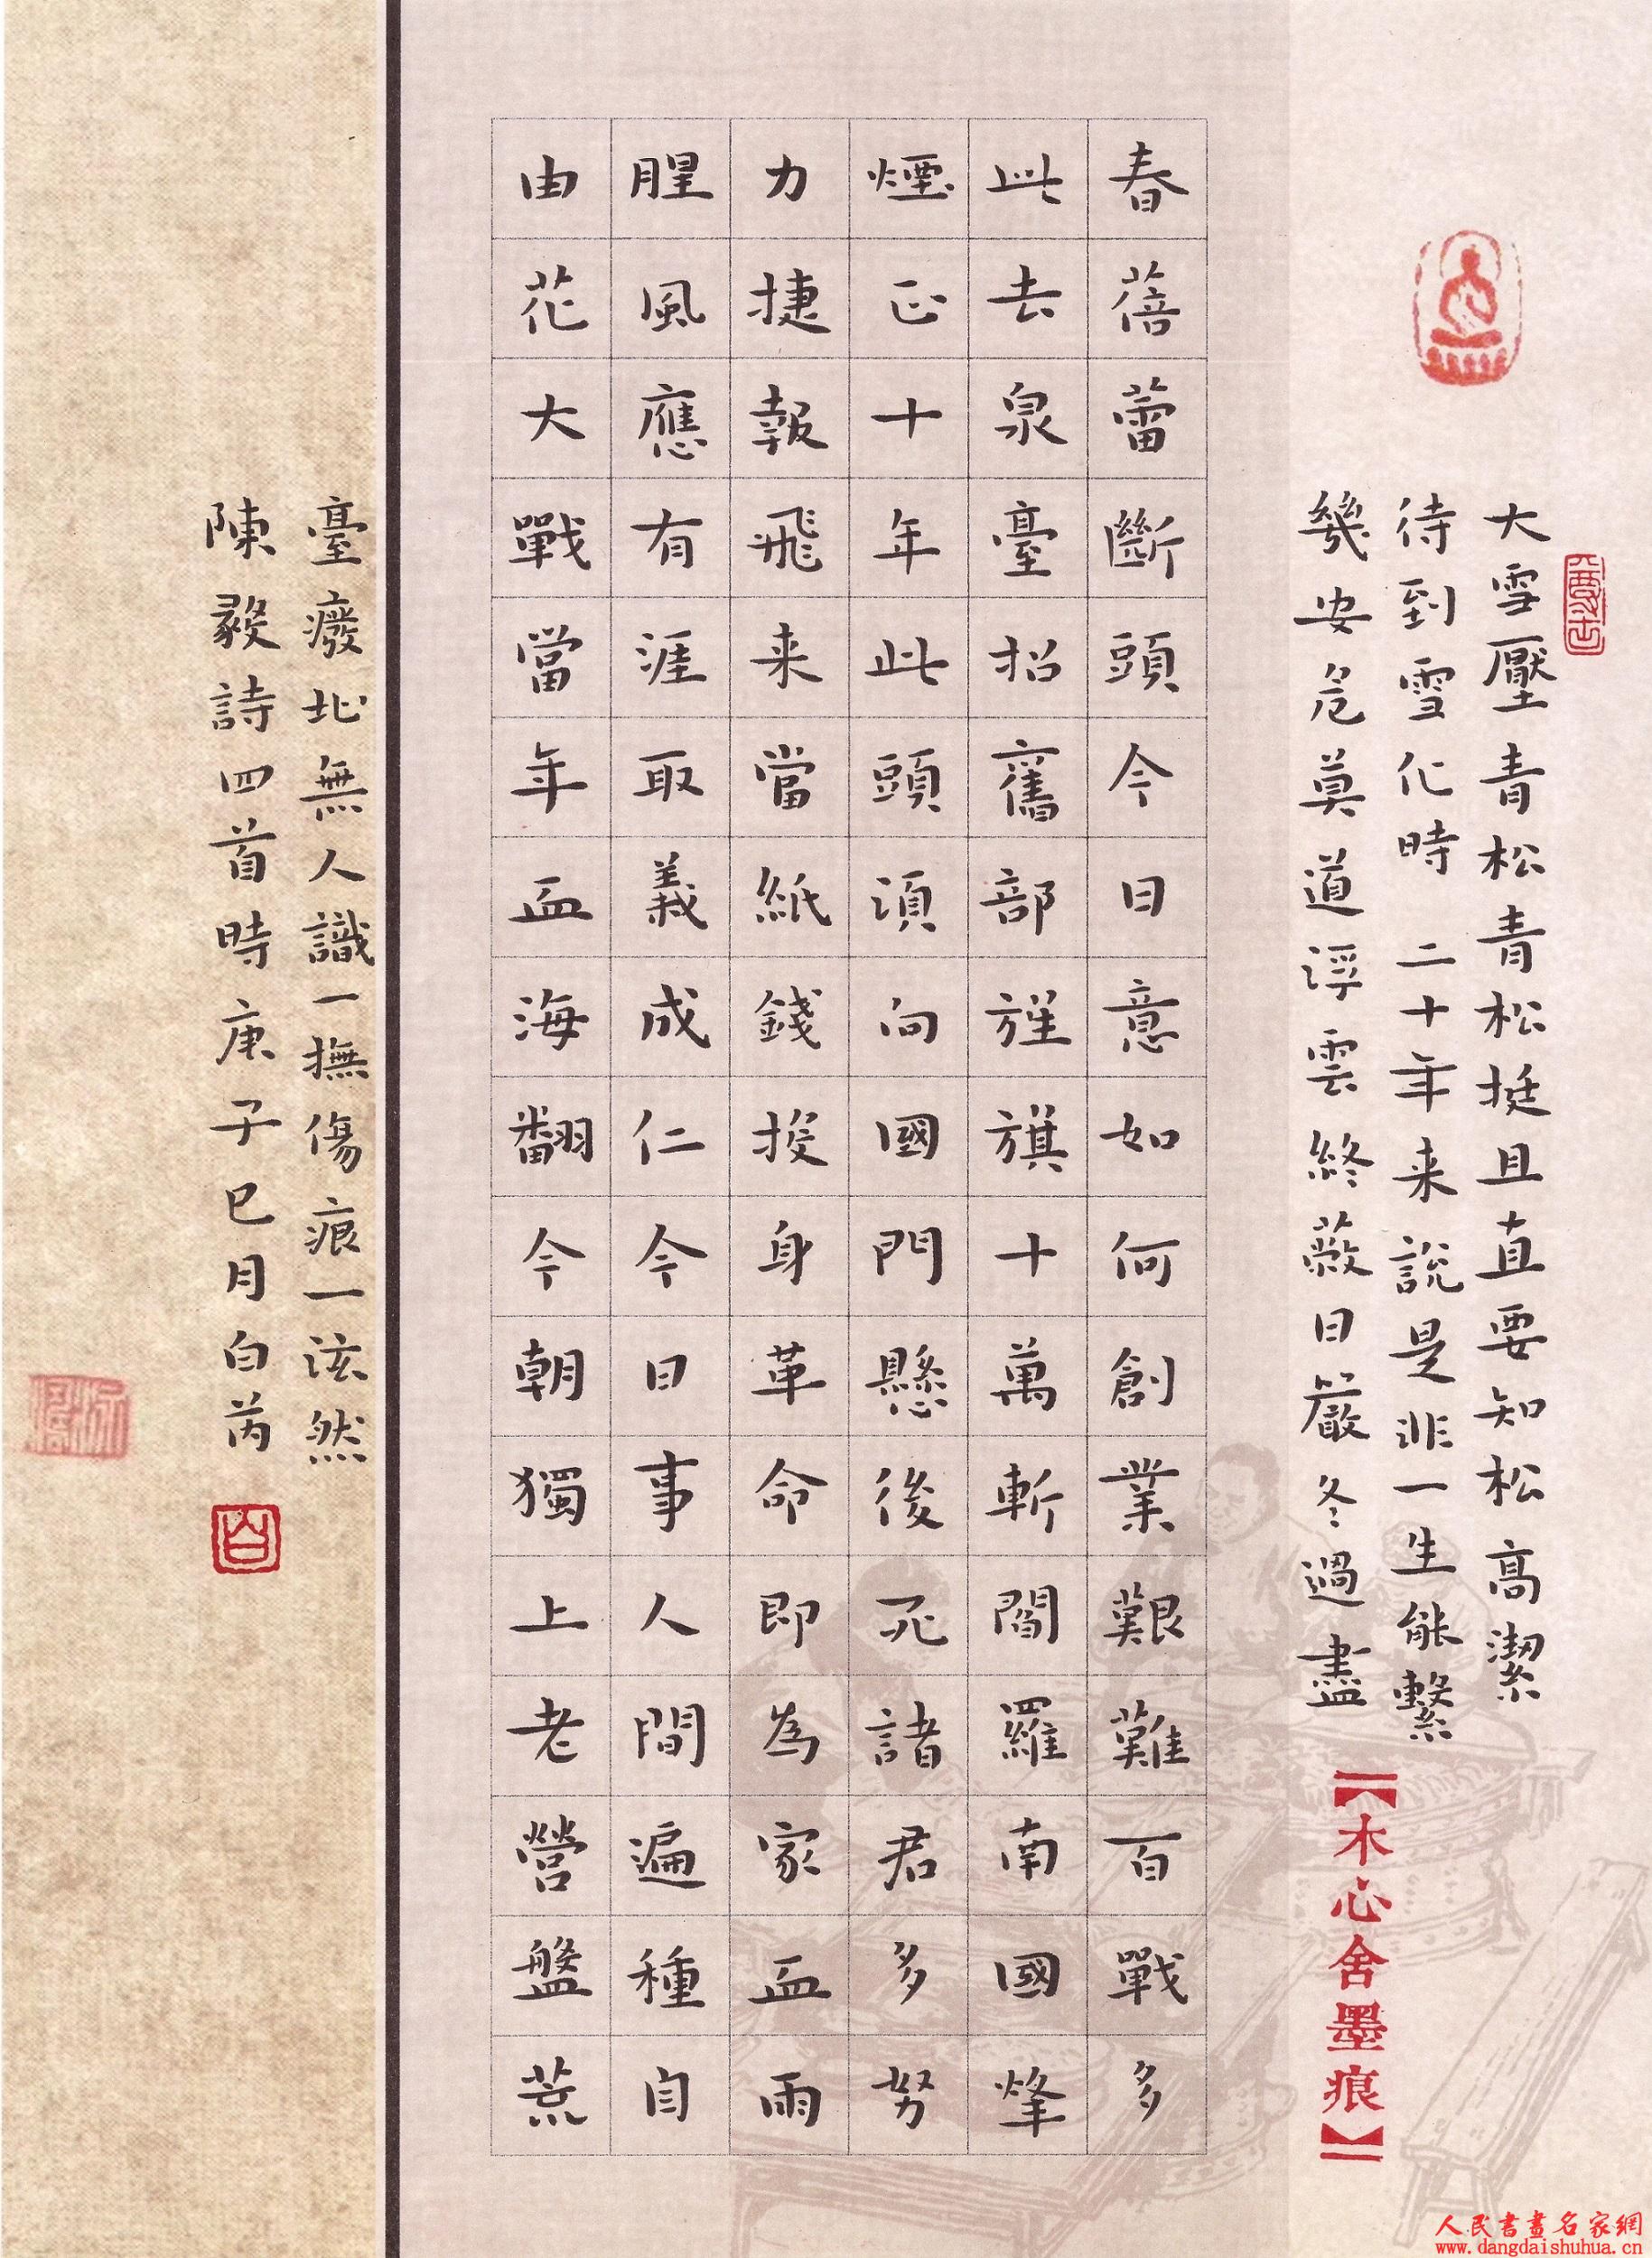 大雪壓青松青松挺且直要知松高潔
待到雪化時二十年来說是非一生能繫
幾安危莫道浮雲終蔽日嚴冬過盡
【木心舍墨痕】
春蓓蕾斷頭今日意如何創業艱難百戰多
此去泉臺招舊部旌旗十萬斬閻羅南國烽
煙正十年此頭須向國門懸後死諸君多努
力捷報飛来當紙錢投身革命即為家血雨
腥風應有涯取義成仁今日事人間遍種自
由花大戰當年血海翻今朝獨上老營盤荒
臺廢址無人識一撫傷痕一泫然
陳毅詩四首時庚子巳月白芮
人民書畫名家網
www.dangdaishuhua.cn